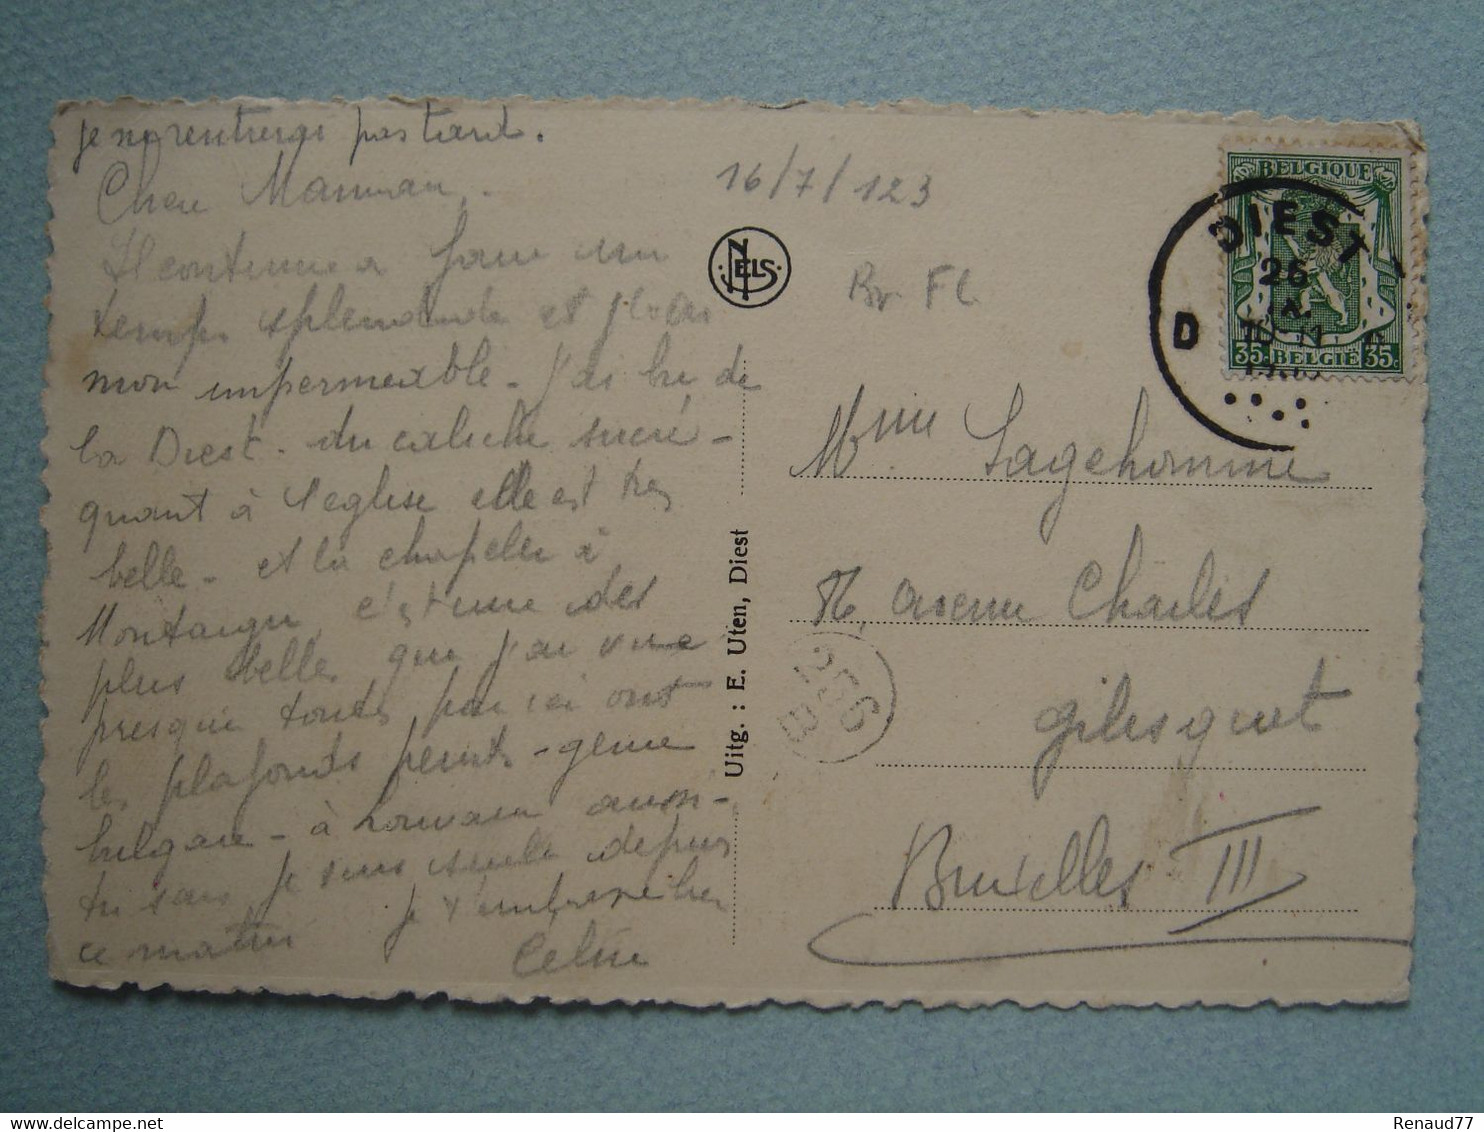 je ne rentrerai pas tard.
Chere Maman.
Il continue a faire un
temps splendide et j'
mon impermeable - j'ai bu de
la Diest - du sucré -
quant à l'eglise elle est tres
belle - et la chapelle à
Montaigu c'est une des
plus belles que j'ai vue
presque toutes par ici ont
les plafonds peints - genre
bulgare - à Louvain aussi -
tu sais je suis seule depuis
ce matin je t'embrasse bien
Celine
16/7/123
NELS
Br Fl
Uitg. : E. Uten, Diest
BELGIQUE
35c BELGIË 35c
DIEST
26
10-11
D
Mme Sagehomme
avenue Charles
Gilisquet
Bruxelles III
256
B
delcampe.net
Renaud77